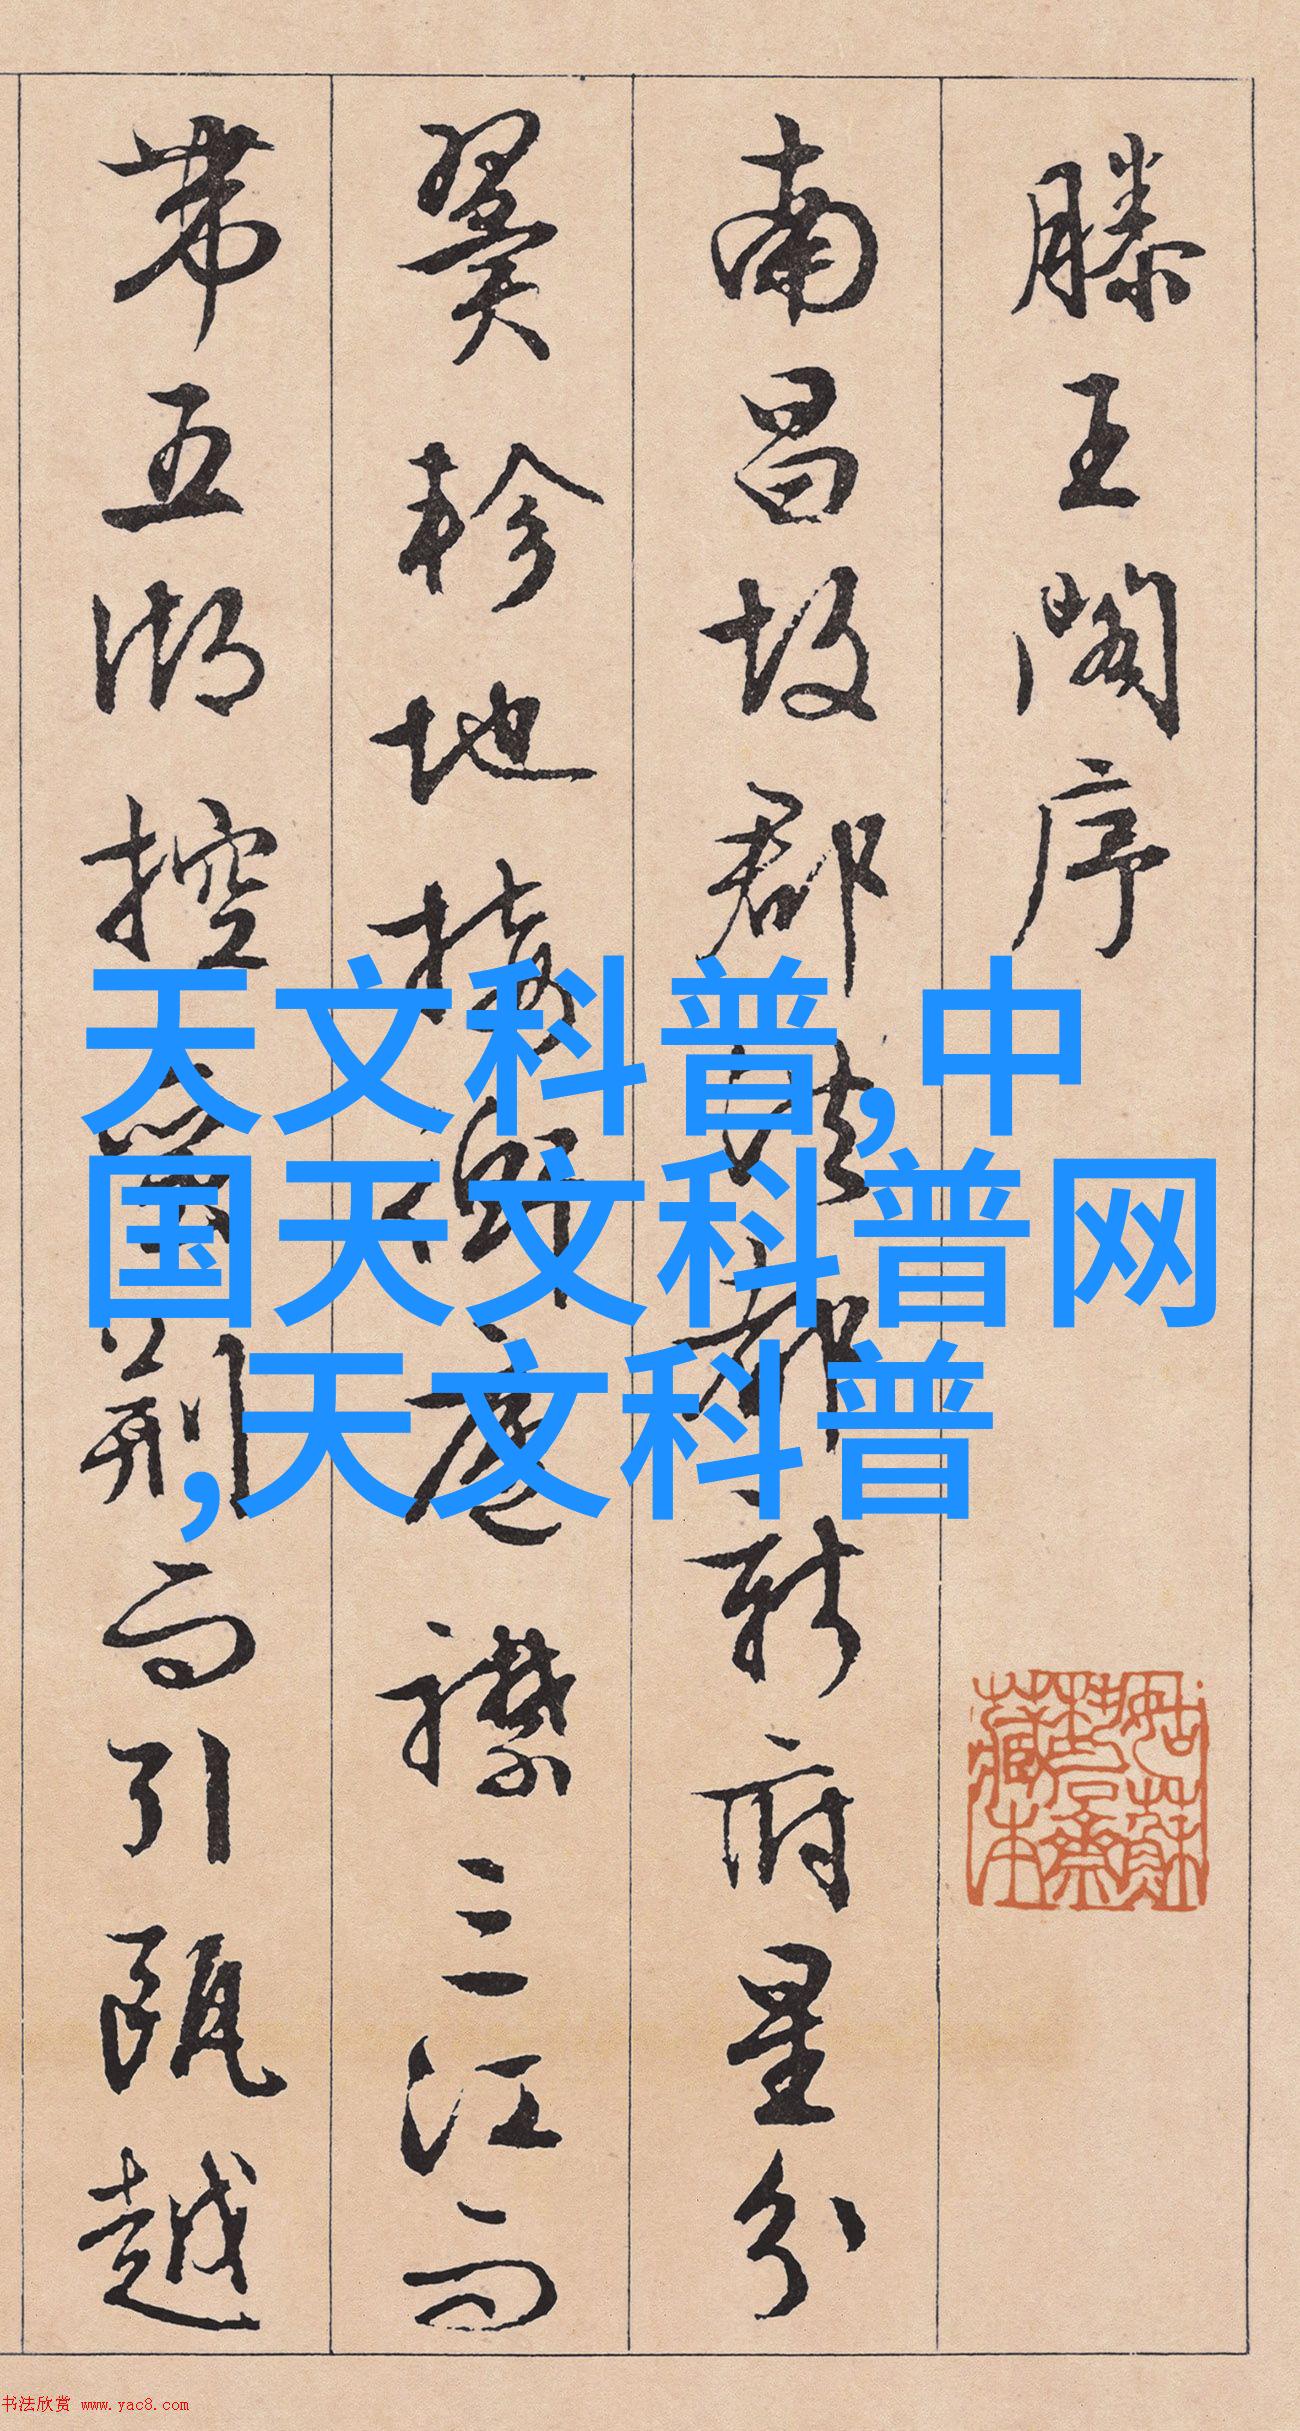 滕王閣序
南昌故郡洪都新府星分
翼軫地接衡廬襟三江而
帶五湖控蠻荊而引甌越
天文科普,中
国天文科普网
,天文科普
书法欣赏 www.yac8.com